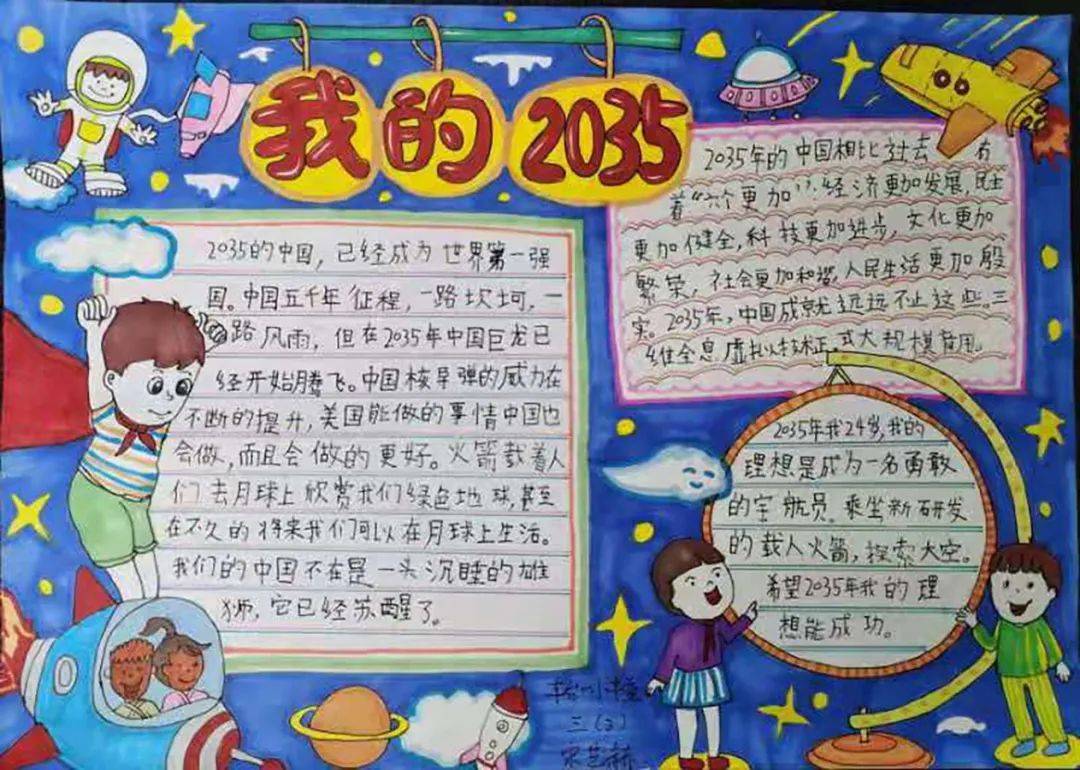 我的2035
2035的中国，已经成为世界第一强
国。中国五千年征程，一路坎坷，一
路风雨，但在2035年中国巨龙已
经开始腾飞。中国核导弹的威力在
不断的提升，美国能做的事情中国也
会做，而且会做的更好。火箭载着人
们去月球上欣赏我们绿色地球，甚至
在不久的将来我们可以在月球上生活。
我们的中国不在是一头沉睡的雄
狮，它已经苏醒了。
2035年的中国相比过去 有
着“六个更加”，经济更加发展，民主
更加健全，科技更加进步，文化更加
繁荣，社会更加和谐，人民生活更加殷
实。2035年，中国成就远远不止这些。三
维全息虚拟技术正式大规模商用。
2035年我24岁，我的
理想是成为一名勇敢
的宇航员。乘坐新研发
的载人火箭，探索太空。
希望2035年我的理
想能成功。
三(2)